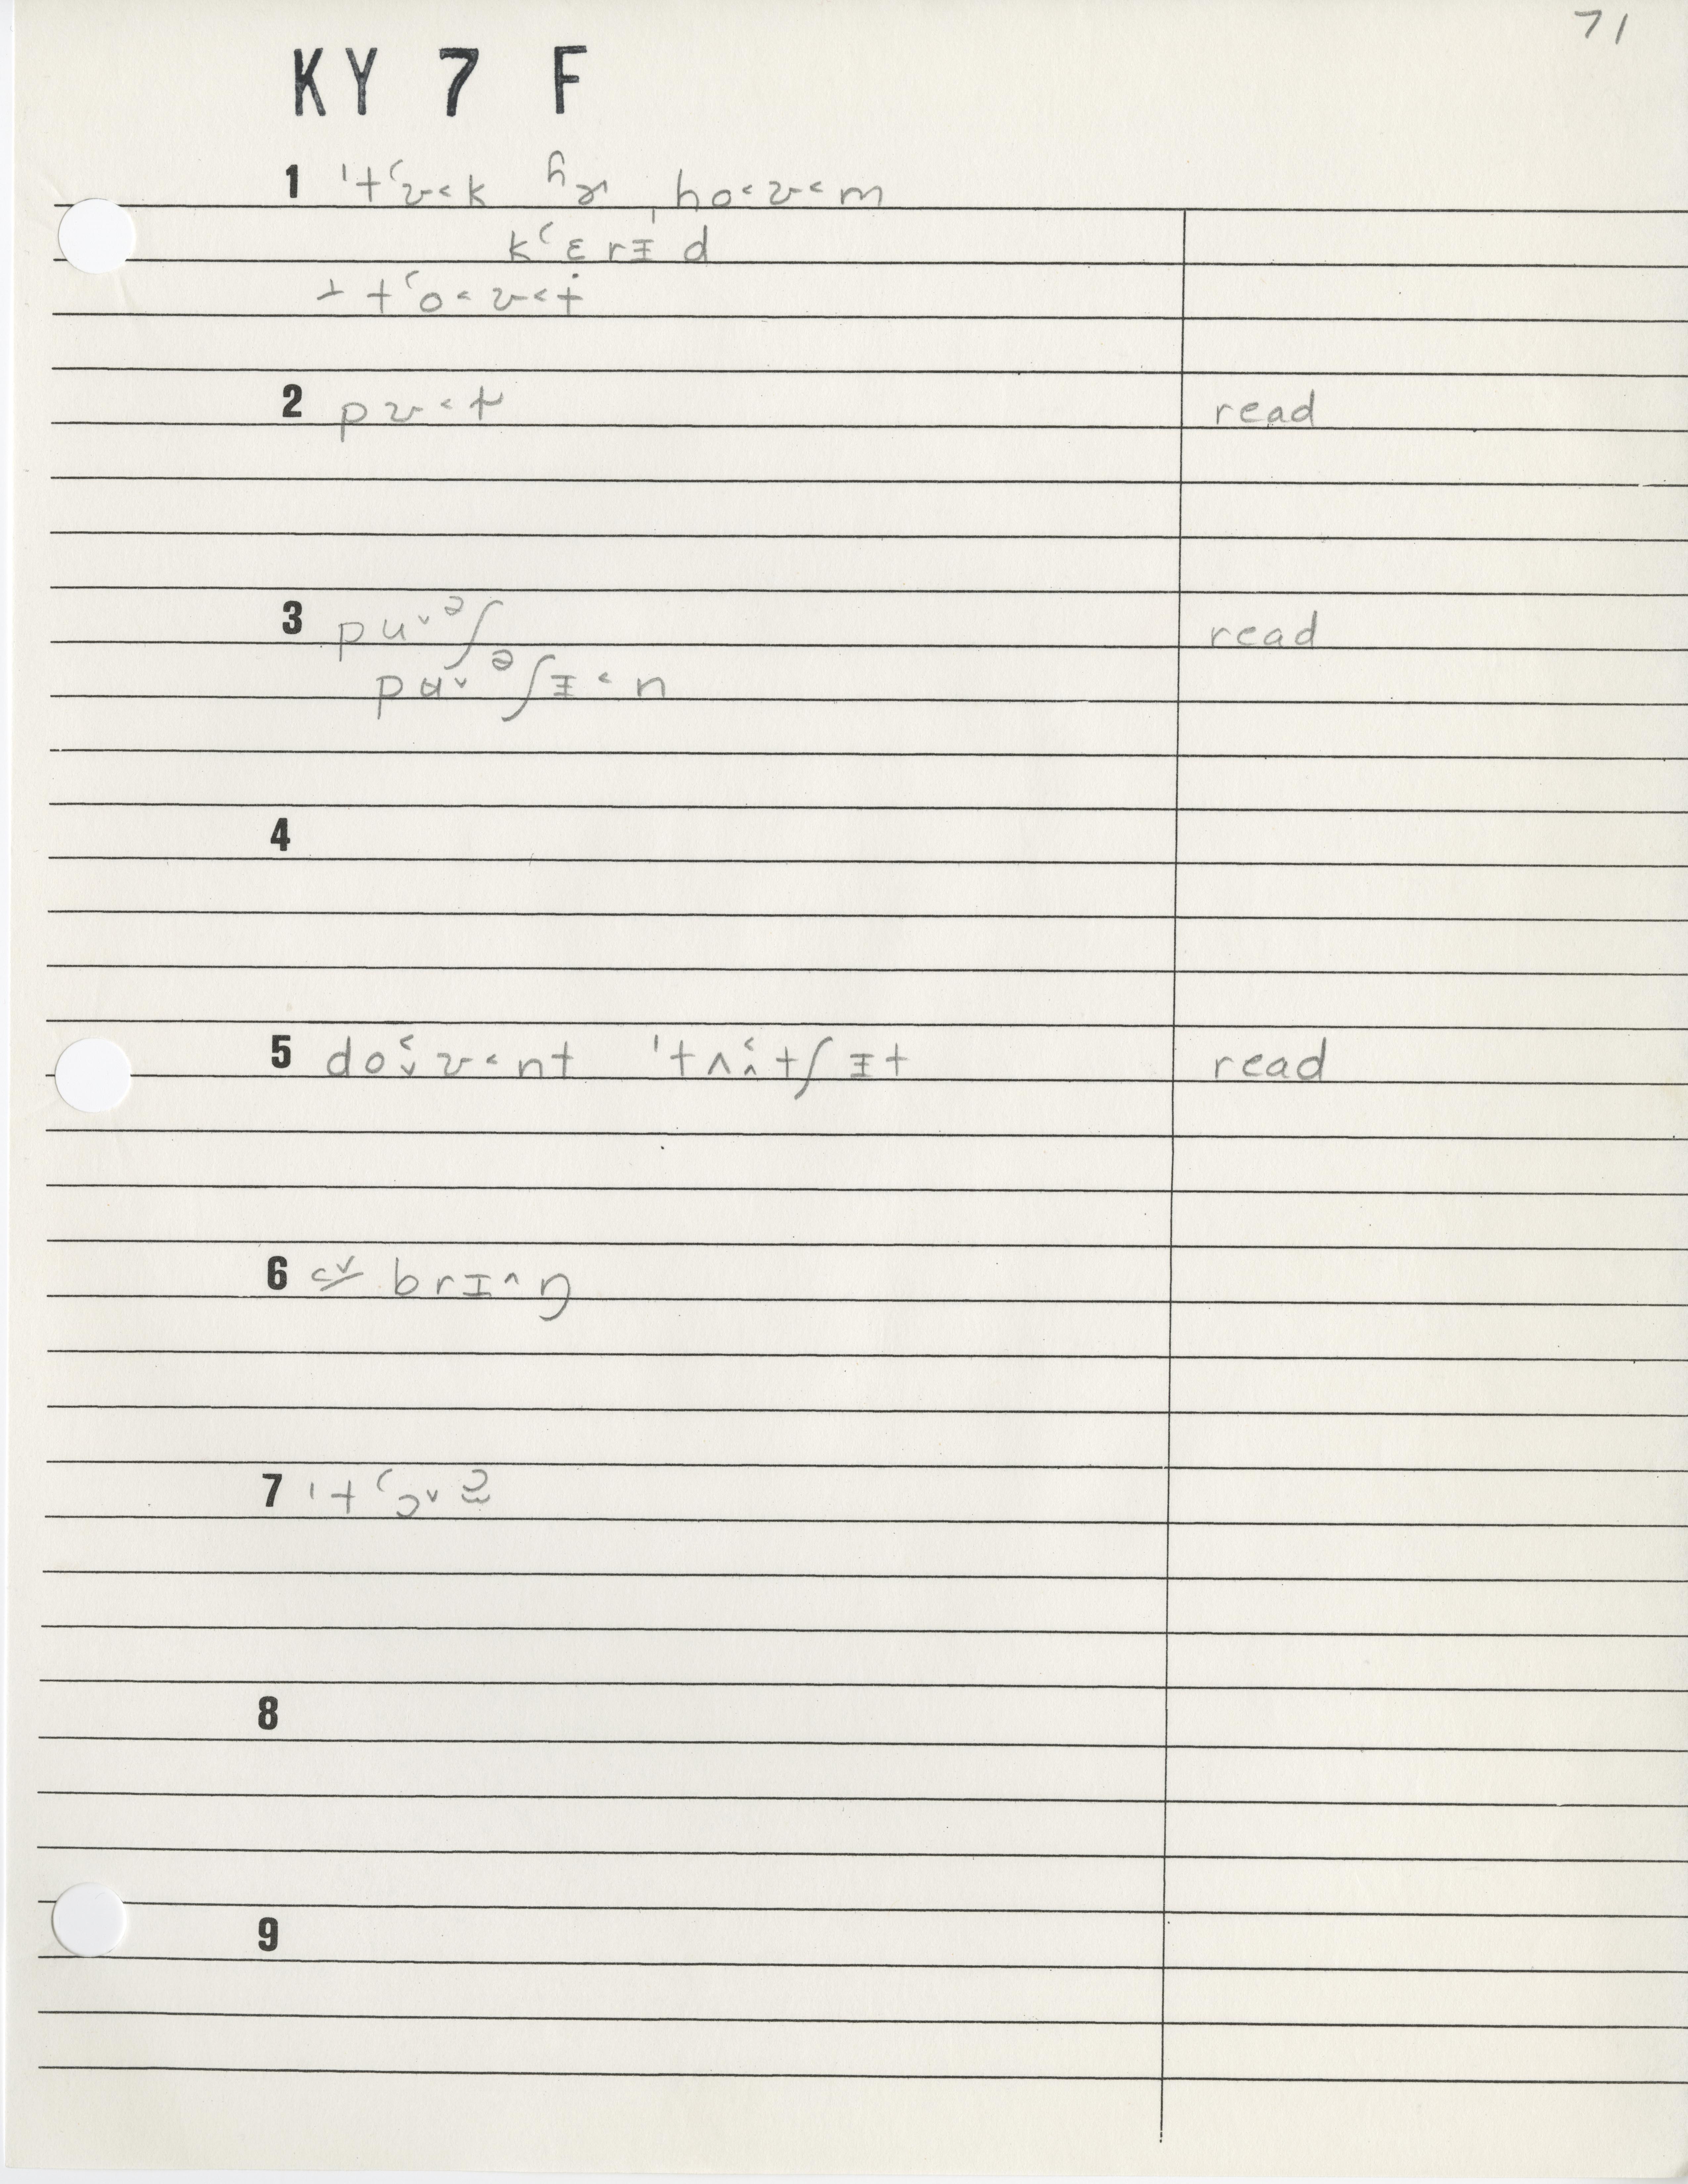 71
KY 7 F
1 ˈtʻʊ˂k ɦɚ ˌho˂ʊ˂m
kʻɛrɪˈd
tʻo˂ʊ˂t
2 pʊ˂t read
3 pu˅ᵊʃ read
pʉ˅ᵊʃɪ˂n
4
5 doʊ˂nt ˈtʌtʃɪt read
6 brɪ˄ŋ
7
8
9